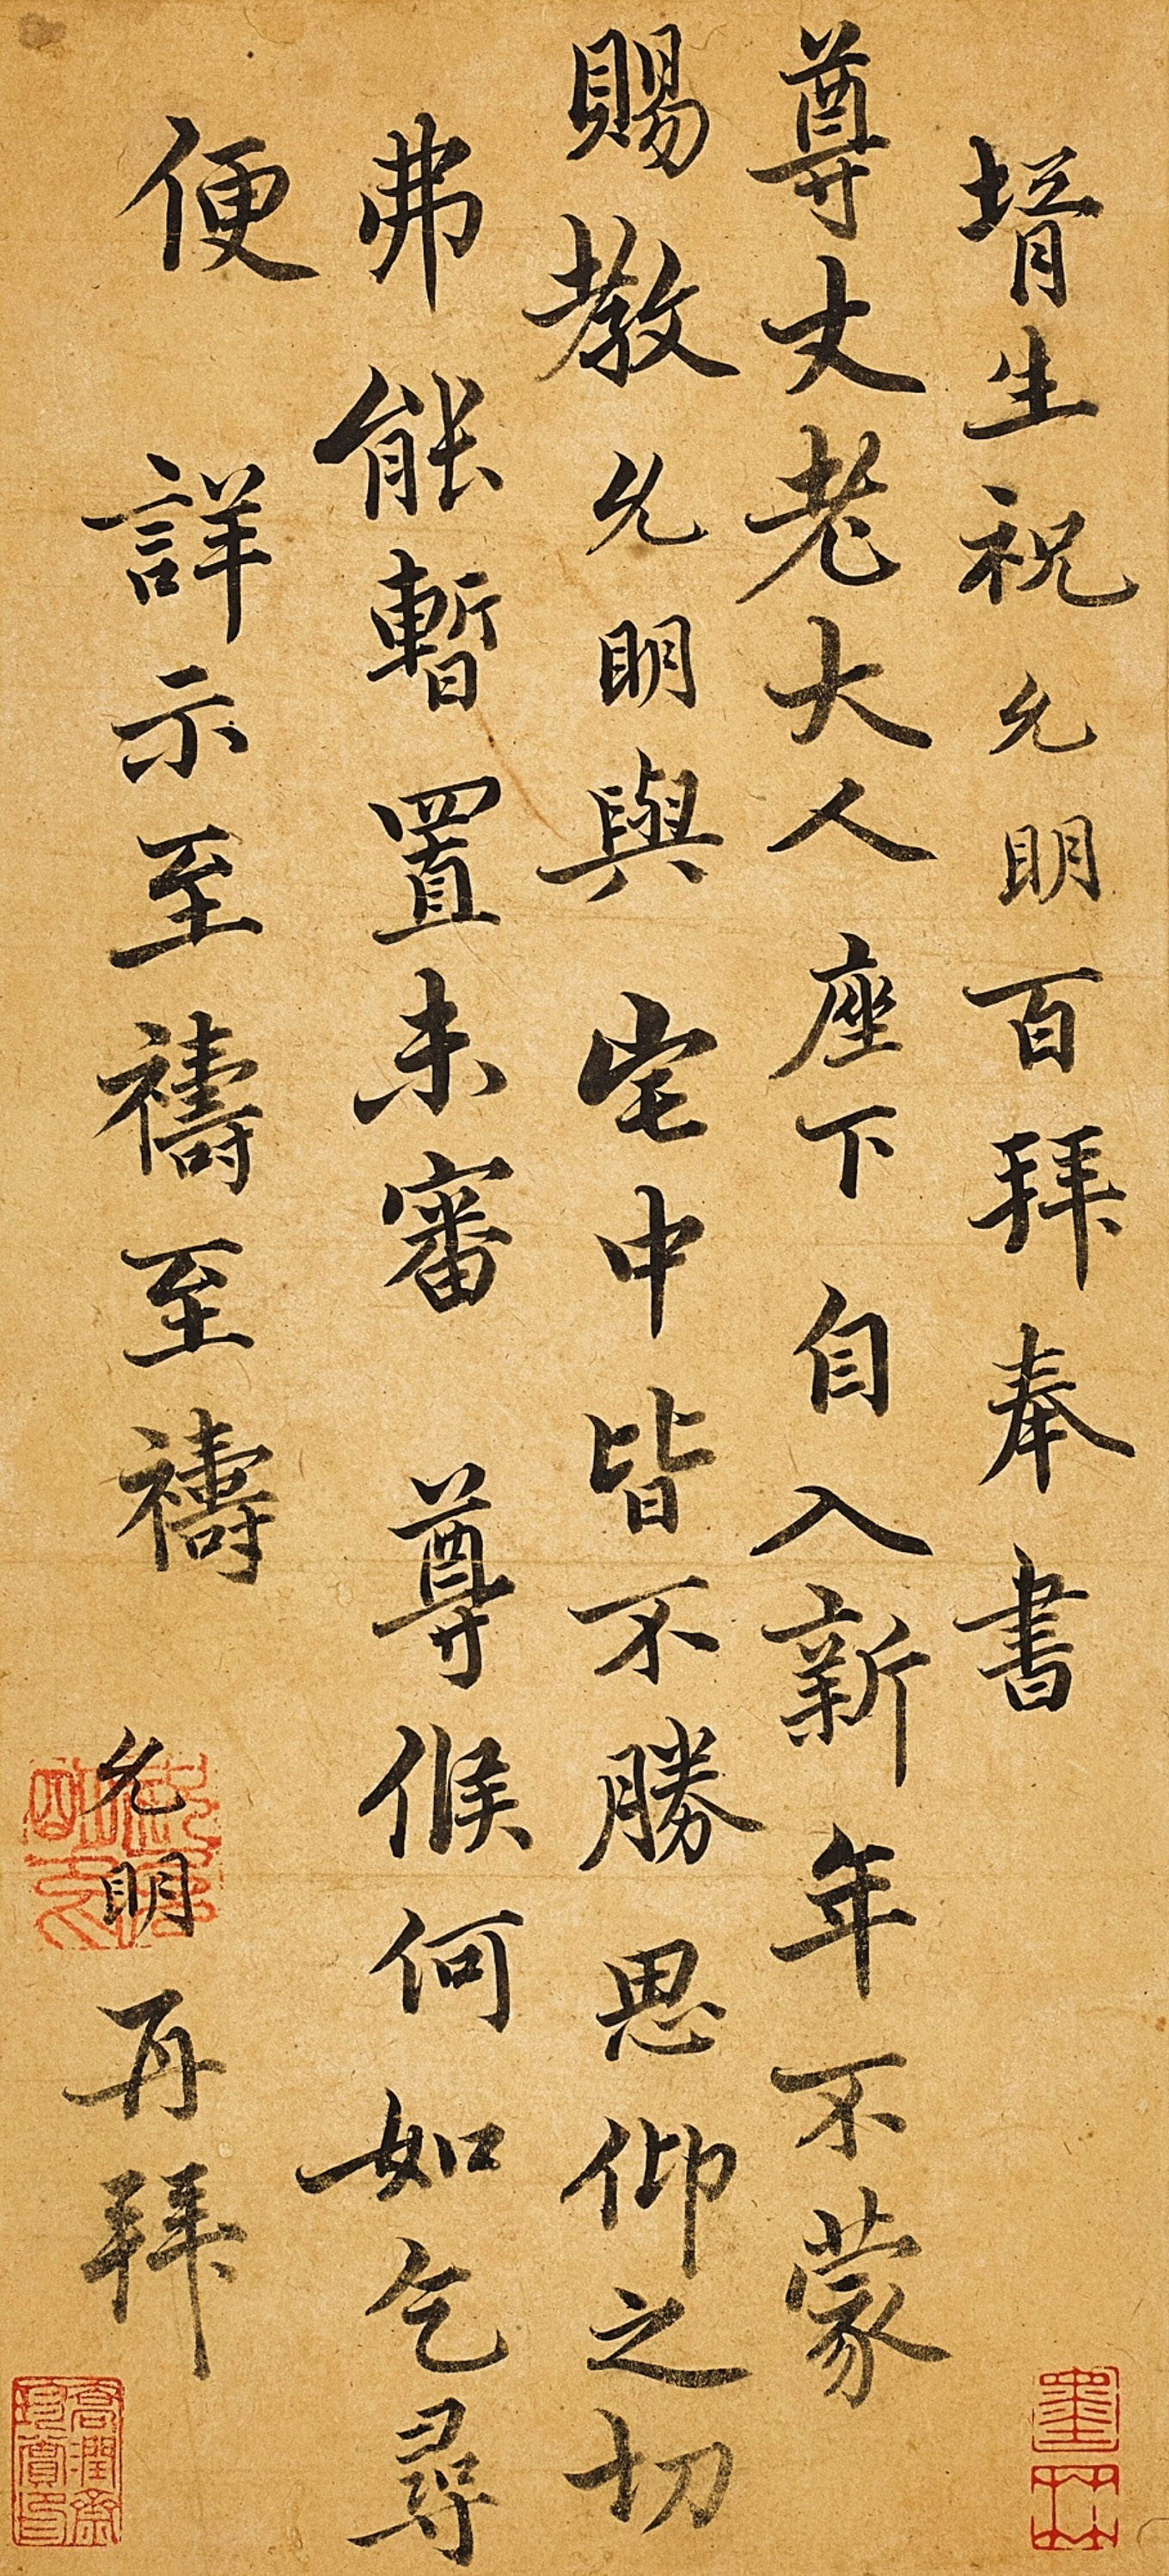 壻生祝允明百拜奉書
尊丈老大人座下自入新年不蒙
賜教允明與宅中皆不勝思仰之切
弗能暫置未審尊候何如乞尋
便詳示至禱至禱允明再拜